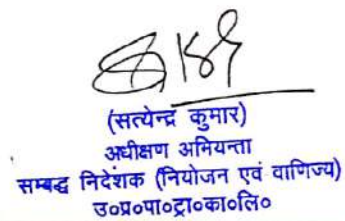 (सत्येन्द्र कुमार)
अधीक्षण अभियन्ता
सम्बद्ध निदेशक (नियोजन एवं वाणिज्य)
उ०प्र०पा०ट्रा०का०लि०